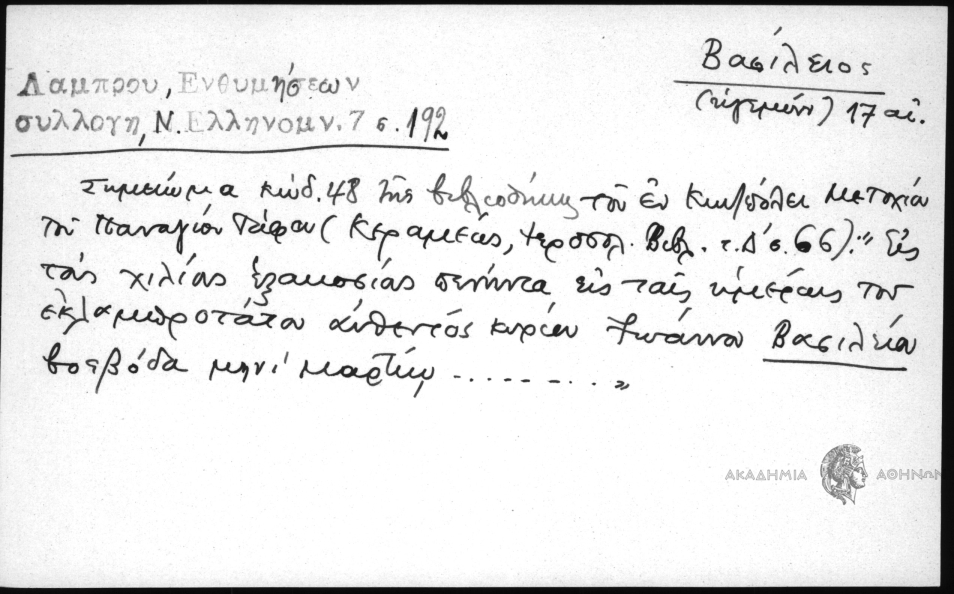 Βασίλειος
(ἡγεμών) 17 αἰ.
Λαμπρου, Ενθυμήσεων
συλλογη, Ν. Ελληνομν. 7 σ. 192
Σημείωμα κώδ. 48 τῆς βιβλιοθήκης τοῦ ἐν Κων/πόλει Μετοχίου
τοῦ Παναγίου Τάφου (Κεραμέως, Ἱεροσολ. Βιβλ. τ. Δ' σ. 66). "Εἰς
τάς χιλίας ἑξακοσίας πενήντα εἰς ταῖς ἡμέραις τοῦ
ἐκλαμπροτάτου αὐθεντός κυρίου Ἰωάννου Βασιλείου
βοεβόδα μηνί Μαρτίῳ .......... "
ΑΚΑΔΗΜΙΑ ΑΘΗΝΩΝ